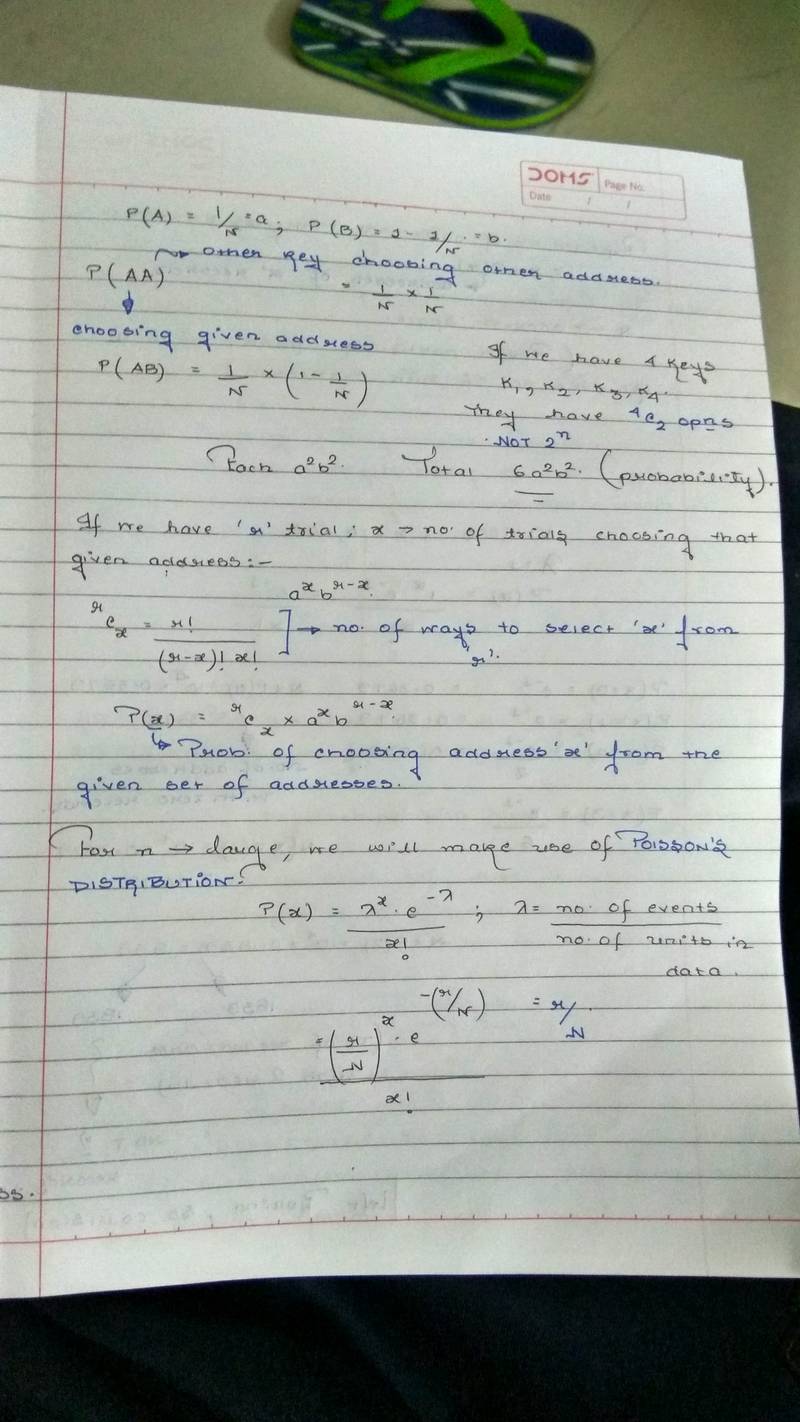 DOMS Page No.
Date / /
P(A) = 1/N = a ; P(B) = 1 - 1/N = b.
P(AA) → other key choosing other address.
= 1/N × 1/N
↓
choosing given address
P(AB) = 1/N × (1 - 1/N)
If we have 4 keys
K₁, K₂, K₃, K₄.
They have ⁴C₂ opns
NOT 2ⁿ
Each a²b². Total 6a²b². (probability).
If we have 'r' trial ; x → no. of trials choosing that
given address :-
aˣbʳ⁻ˣ.
ʳCₓ = r! / (r-x)! x! ] → no. of ways to select 'x' from
'r'.
P(x) = ʳCₓ × aˣbʳ⁻ˣ
↳ Prob. of choosing address 'x' from the
given set of addresses.
For n → large, we will make use of POISSON'S
DISTRIBUTION:
P(x) = λˣ · e^-λ / x! ; λ = no. of events / no. of units in
data.
= (r/N)ˣ · e^-(r/N) / x!
= r/N
ss.